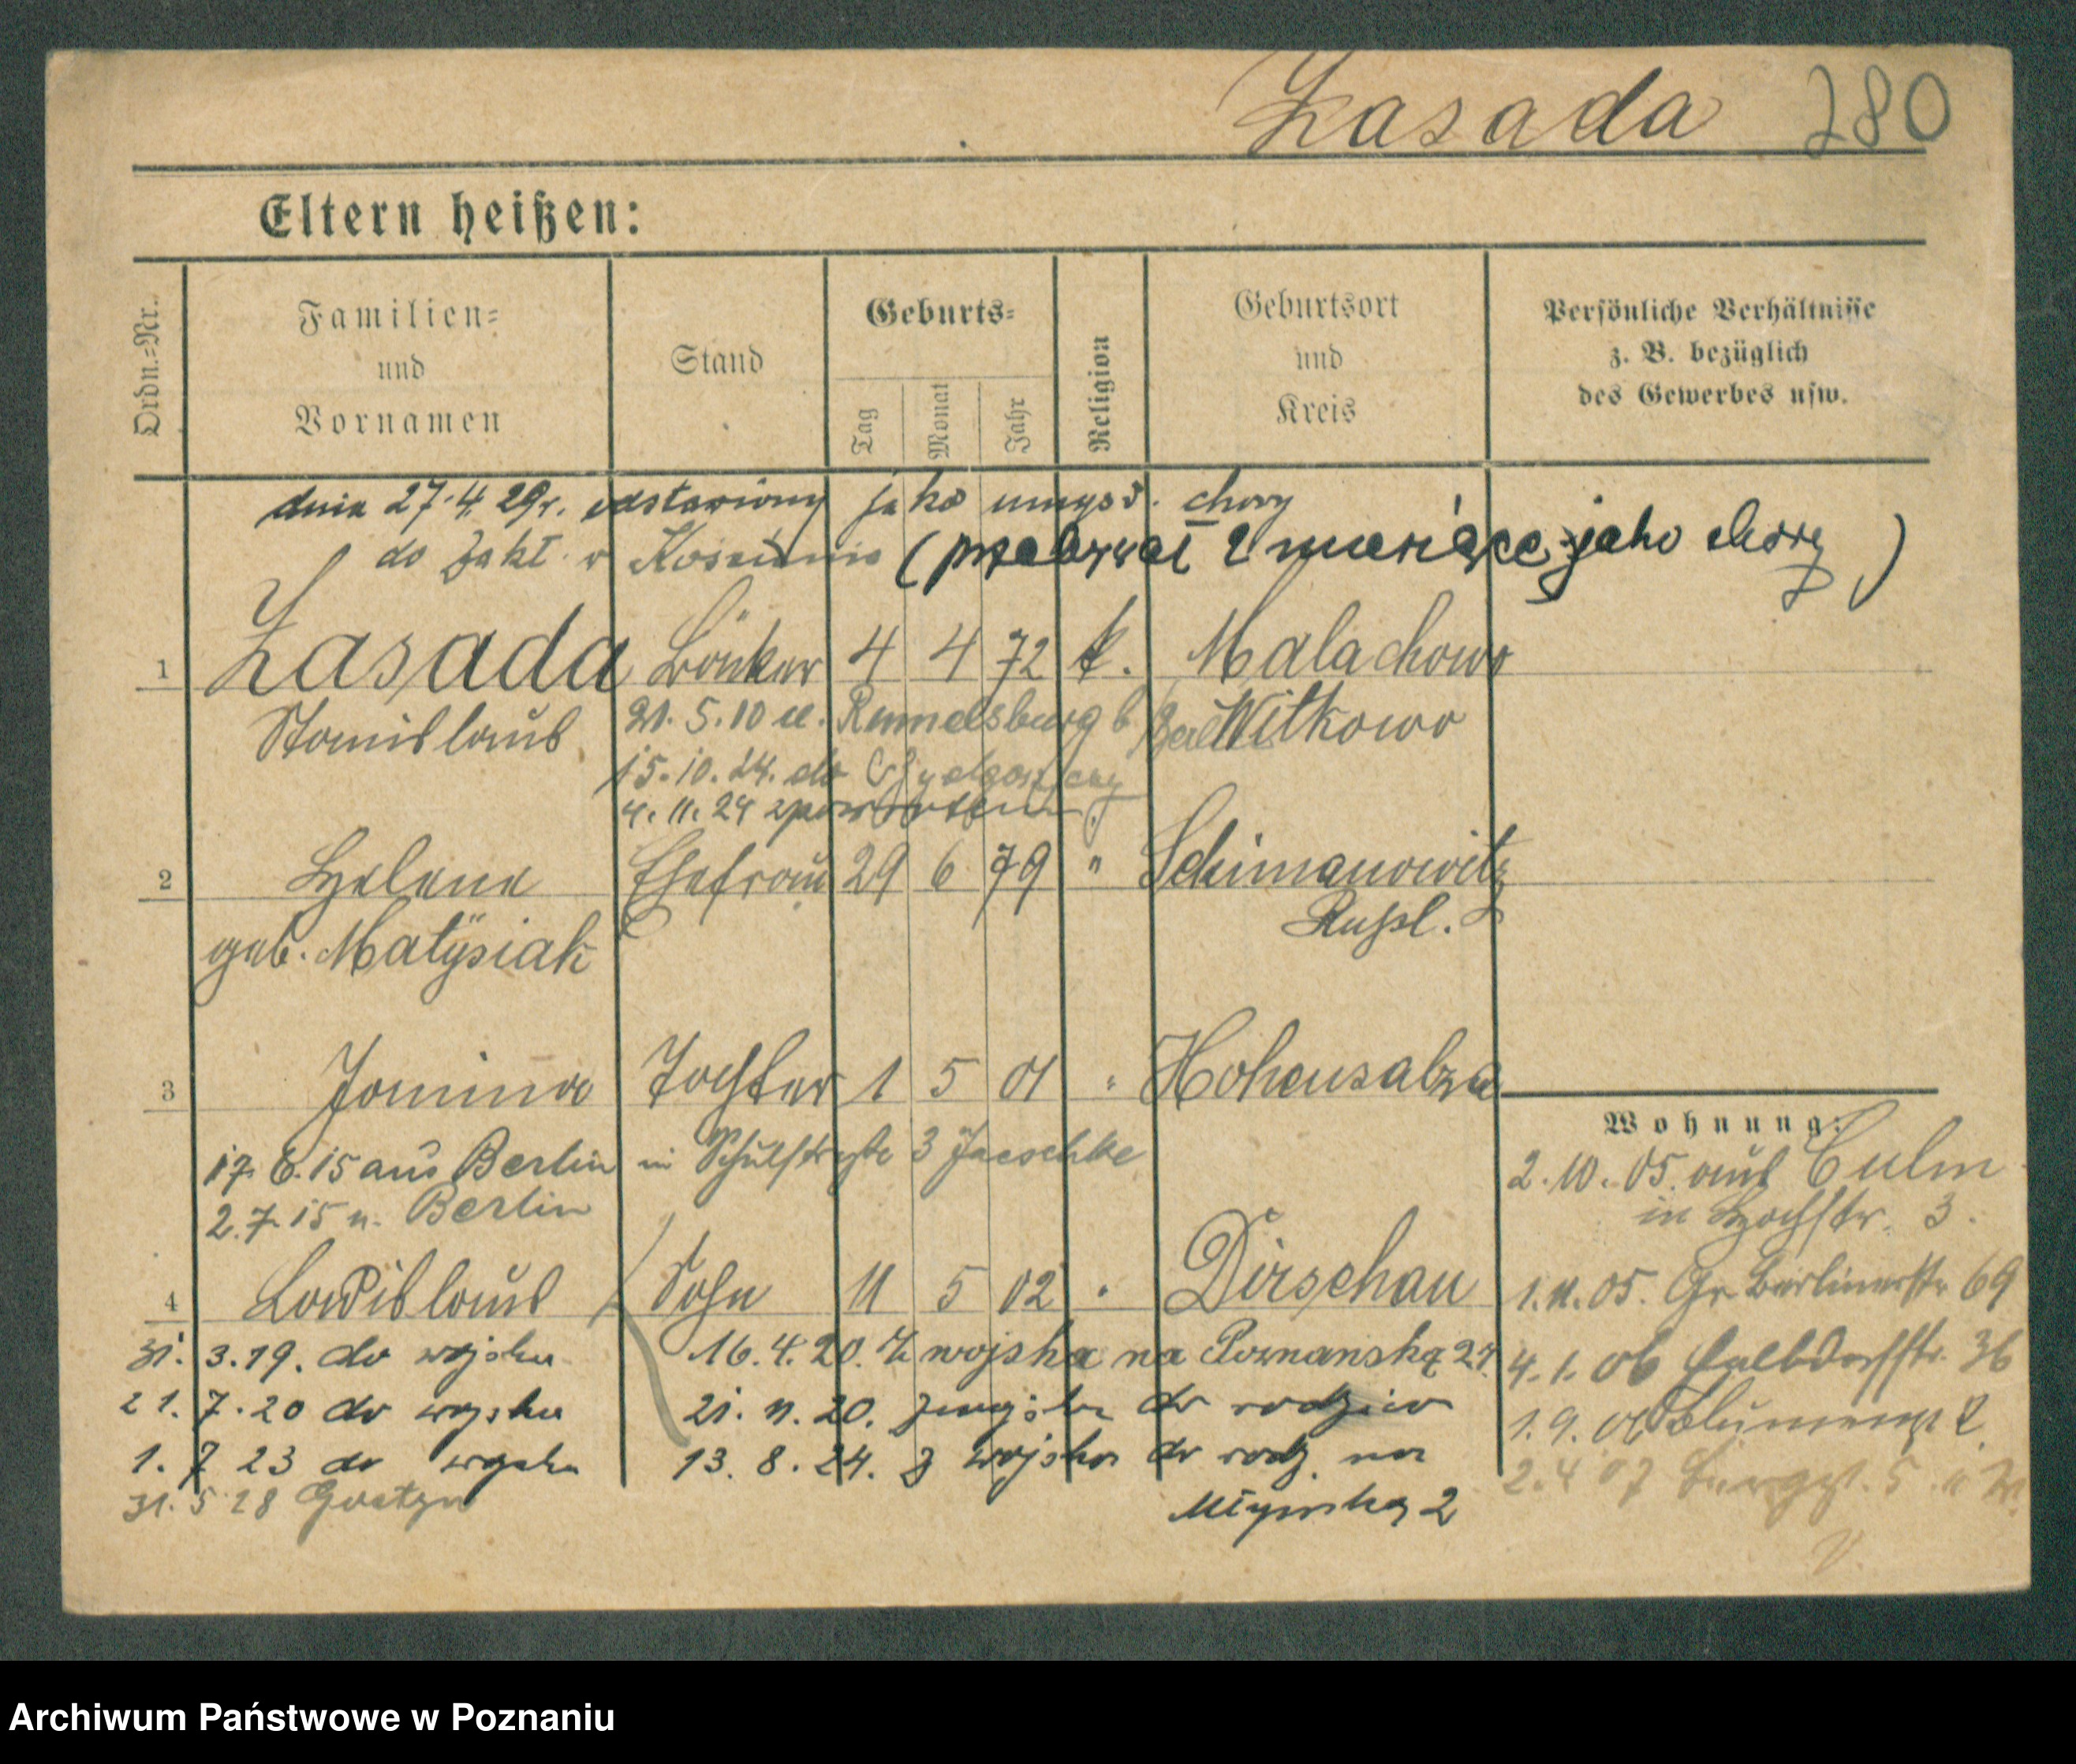 Zasada 280
Eltern heißen:
Ordn.-Nr.
Familien-
und
Vornamen
Stand
Geburts-
Tag
Monat
Jahr
Religion
Geburtsort
und
Kreis
Persönliche Verhältnisse
z. B. bezüglich
des Gewerbes usw.
dnia 27.4.29r. odstawiony jako umysł. chory
do Zakł. w (przebywał 2 miesiące jako chory)
1 Zasada 4 4 72 k. Malachowo
Stanislaus 21. 5. 10 n. Rummelsburg b. Berlin Witkowo
15. 10. 24. do Bydgoszczy
4. 11. 24 z powrotem
2 Helene Ehefrau 29 6 79 " Schimanowitz
geb. Matÿsiak Rußl.
3 Janina Tochter 1 5 01 " Hohensalza
Wohnung:
17. 6. 15 aus Berlin in 3 Jaeschke
2. 7. 15 n. Berlin
2. 10. 05. aus Culm
in Hochstr. 3.
4 Ladislaus Sohn 11 5 02 " Dirschau
1. 11. 05. Gr. Berlinerstr 69
31. 3. 19. do wojska 16. 4. 20. Z wojska na Poznanską 27.
4. 1. 06 36
21. 7. 20 do wojska 21. 11. 20. z wojska do rodziców
1. 9. 06 Blumenstr 2
1. 7 23 do wojska 13. 8. 24. z wojska do rodz. na
Młyńską 2
2. 4 07 5
31. 5 28 Gostyn
Archiwum Państwowe w Poznaniu